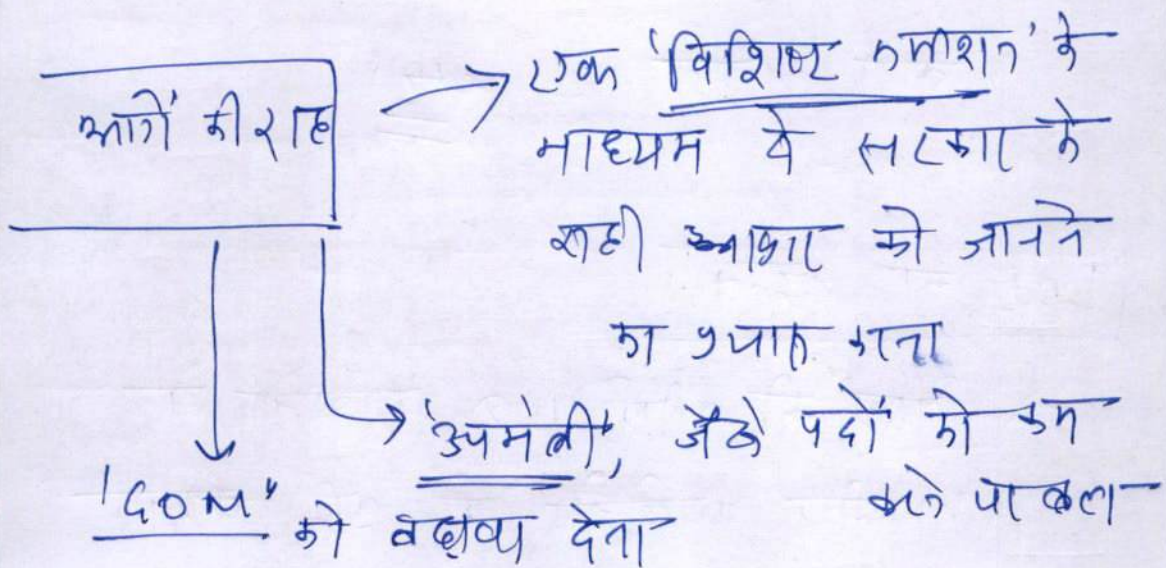 आगे की राह
एक 'विशिष्ट कमीशन' के
माध्यम से सरकार के
सही आकार को जानने
का प्रयास करना
'उपमंत्री', जैसे पदों को कम
करने पर बल
'GOM' को बढ़ावा देना